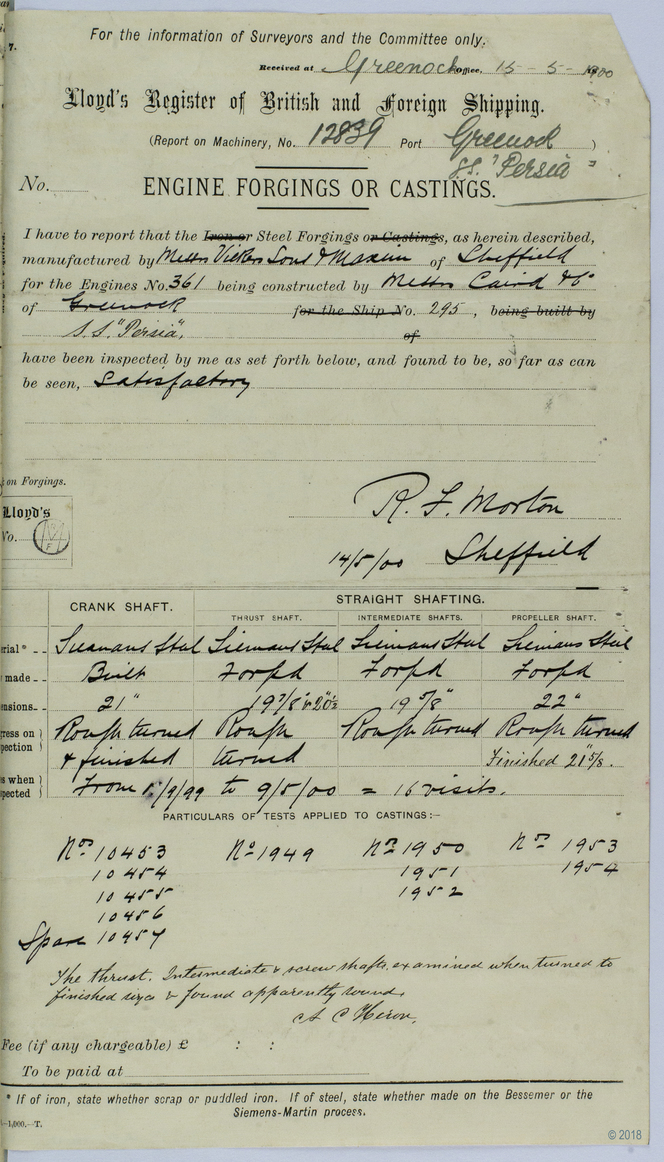 For the information of Surveyors and the Committee only.
7.
Received at Greenock Office. 15 - 5 - 1900
Lloyd's Register of British and Foreign Shipping.
(Report on Machinery, No. 12839 Port Greenock )
S.S. "Persia"
No.
ENGINE FORGINGS OR CASTINGS.
I have to report that the Iron or Steel Forgings or Castings, as herein described,
manufactured by Messrs Vickers Sons & Maxim of Sheffield
for the Engines No. 361 being constructed by Messrs Caird & Co
of Greenock for the Ship No. 295, being built by
S.S. "Persia", of
have been inspected by me as set forth below, and found to be, so far as can
be seen, Satisfactory
on Forgings.
Lloyd's
No.
R. F. Morton
14/5/00 Sheffield
CRANK SHAFT. STRAIGHT SHAFTING.
THRUST SHAFT. INTERMEDIATE SHAFTS. PROPELLER SHAFT.
rial* - - Siemans Steel Siemans Steel Siemans Steel Siemans Steel
made - - Built Forged Forged Forged
ensions - - 21" 19 7/8" & 20 1/2 19 5/8" 22"
ress on Rough turned Rough Rough turned Rough turned
pection } & finished turned Finished 21 5/8".
s when
pected } From /9/99 to 9/5/00 = 16 visits.
PARTICULARS OF TESTS APPLIED TO CASTINGS:—
Nos 10453 No 1949 Nos 1950 Nos 1953
10454 1951 1954
10455 1952
10456
Spare 10457
The thrust. Intermediate & screw shafts, examined when turned to
finished sizes & found apparently sound.
A C Heron.
Fee (if any chargeable) £ : :
To be paid at
* If of iron, state whether scrap or puddled iron. If of steel, state whether made on the Bessemer or the
Siemens-Martin process.
—1,000.—T.
© 2018